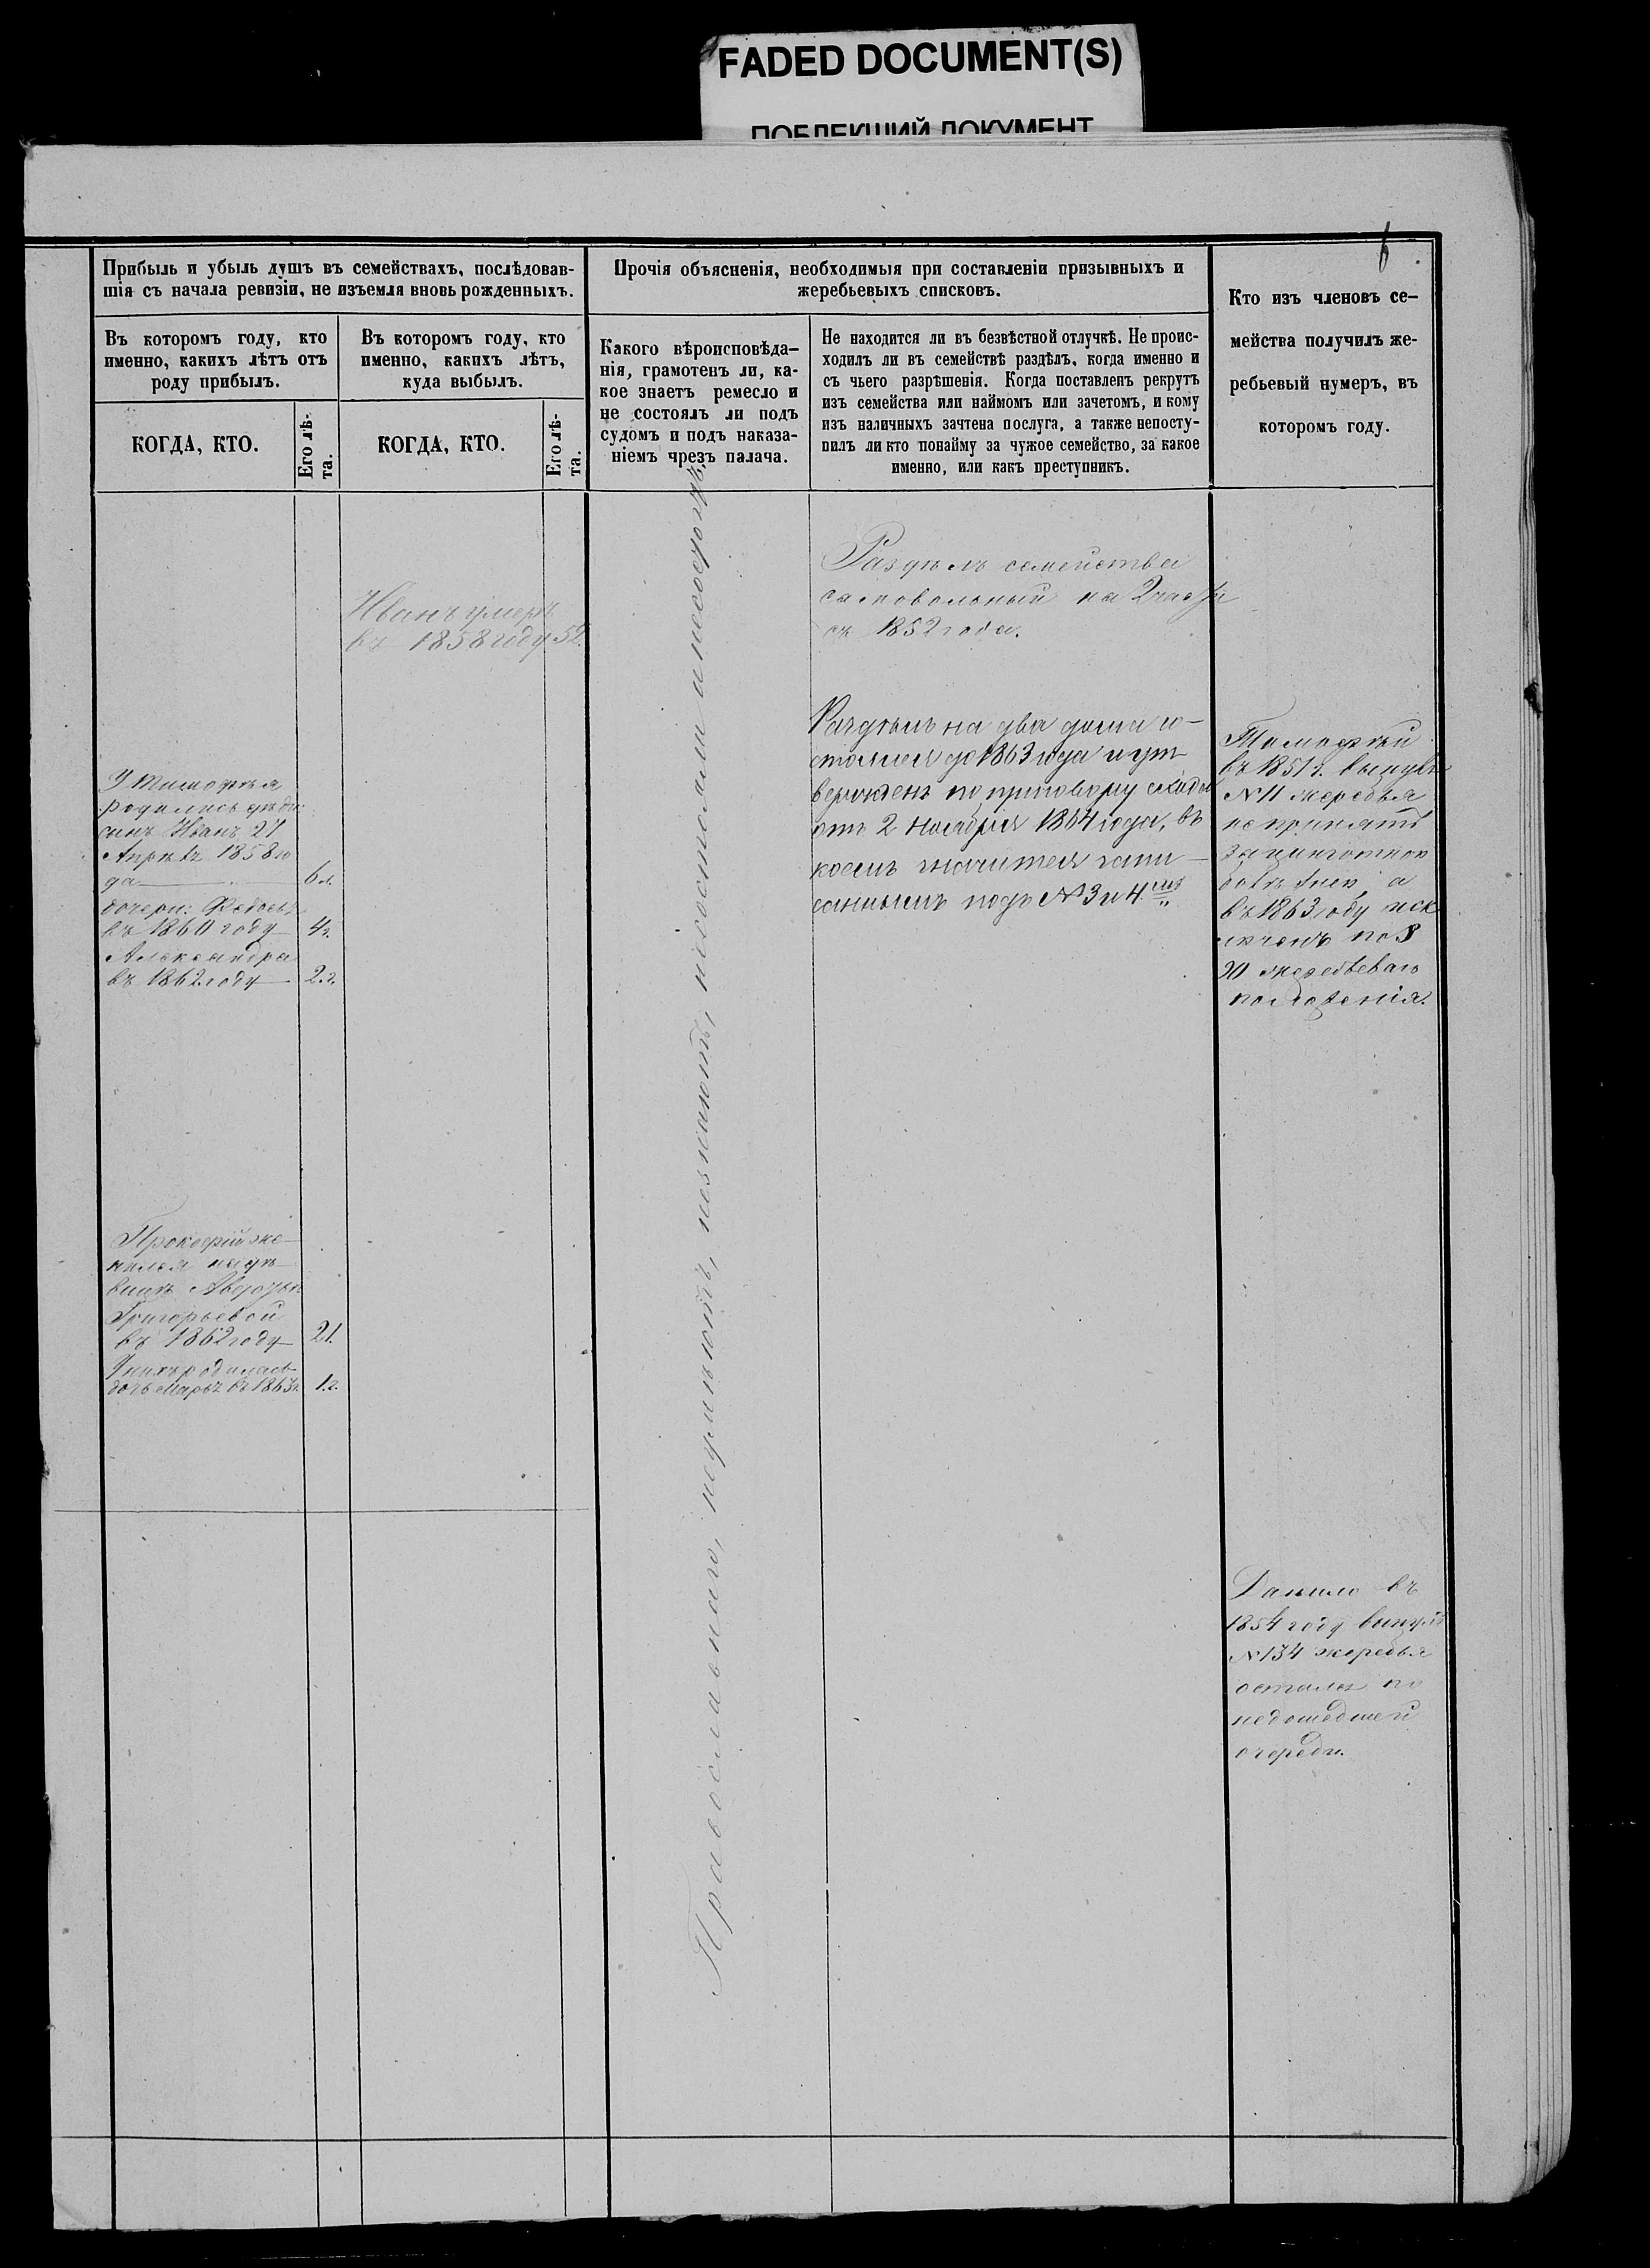 FADED DOCUMENT(S)
ПОБЛЕКШИЙ ДОКУМЕНТ
6
Прибыль и убыль душъ въ семействахъ, послѣдовав-
шія съ начала ревизіи, не изъемля вновь рожденныхъ.
Въ которомъ году, кто
именно, какихъ лѣтъ отъ
роду прибылъ.
КОГДА, КТО.
Его лѣ-
та.
Въ которомъ году, кто
именно, какихъ лѣтъ,
куда выбылъ.
КОГДА, КТО.
Его лѣ-
та.
Прочія объясненія, необходимыя при составленіи призывныхъ и
жеребьевыхъ списковъ.
Какого вѣроисповѣда-
нія, грамотенъ ли, ка-
кое знаетъ ремесло и
не состоялъ ли подъ
судомъ и подъ наказа-
ніемъ чрезъ палача.
Не находится ли въ безвѣстной отлучкѣ. Не проис-
ходилъ ли въ семействѣ раздѣлъ, когда именно и
съ чьего разрѣшенія. Когда поставленъ рекрутъ
изъ семейства или наймомъ или зачетомъ, и кому
изъ наличныхъ зачтена послуга, а также непосту-
пилъ ли кто понайму за чужое семейство, за какое
именно, или какъ преступникъ.
Кто изъ членовъ се-
мейства получилъ же-
ребьевый нумеръ, въ
которомъ году.
У Тимофѣя
родились дѣти:
сынъ Иванъ 21
Апрѣля 1858 го
да 6 л.
дочери: Федосья
въ 1860 году 4 г.
Александра
въ 1862 году 2. г.
Прокофій же-
нился на дѣ
вицѣ Авдотьѣ
Григорьевой
въ 1862 году 21.
У нихъ родилась
дочь Марья въ 1863 г. 1. г.
Иванъ умеръ
въ 1858 году 52.
Православнаго,
Раздѣлъ семейства
самовольный на 2 части
съ 1852 года.
Раздѣлъ на два дома со-
стоялся до 1863 года и ут-
вержденъ по приговору схода
отъ 2 Ноября 1864 года, въ
коемъ значится запи-
саннымъ подъ № 3 и 4мъ
Тимофѣй
въ 1851 г. вынулъ
№ 11 жеребья
не принятъ
а
въ 1863 году иск
люченъ по §
20 жеребьеваго
положенія.
Данило въ
1854 году вынулъ
№ 134 жеребья
остался по
недошедшей
очереди.